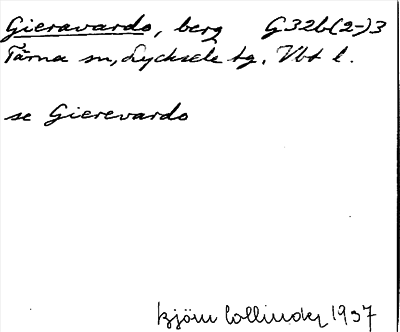 Gieravardo, berg G32b(2-)3
Tärna sn, Lycksele tg. Vbt l.
se Gierevardo
Björn Collinder 1937